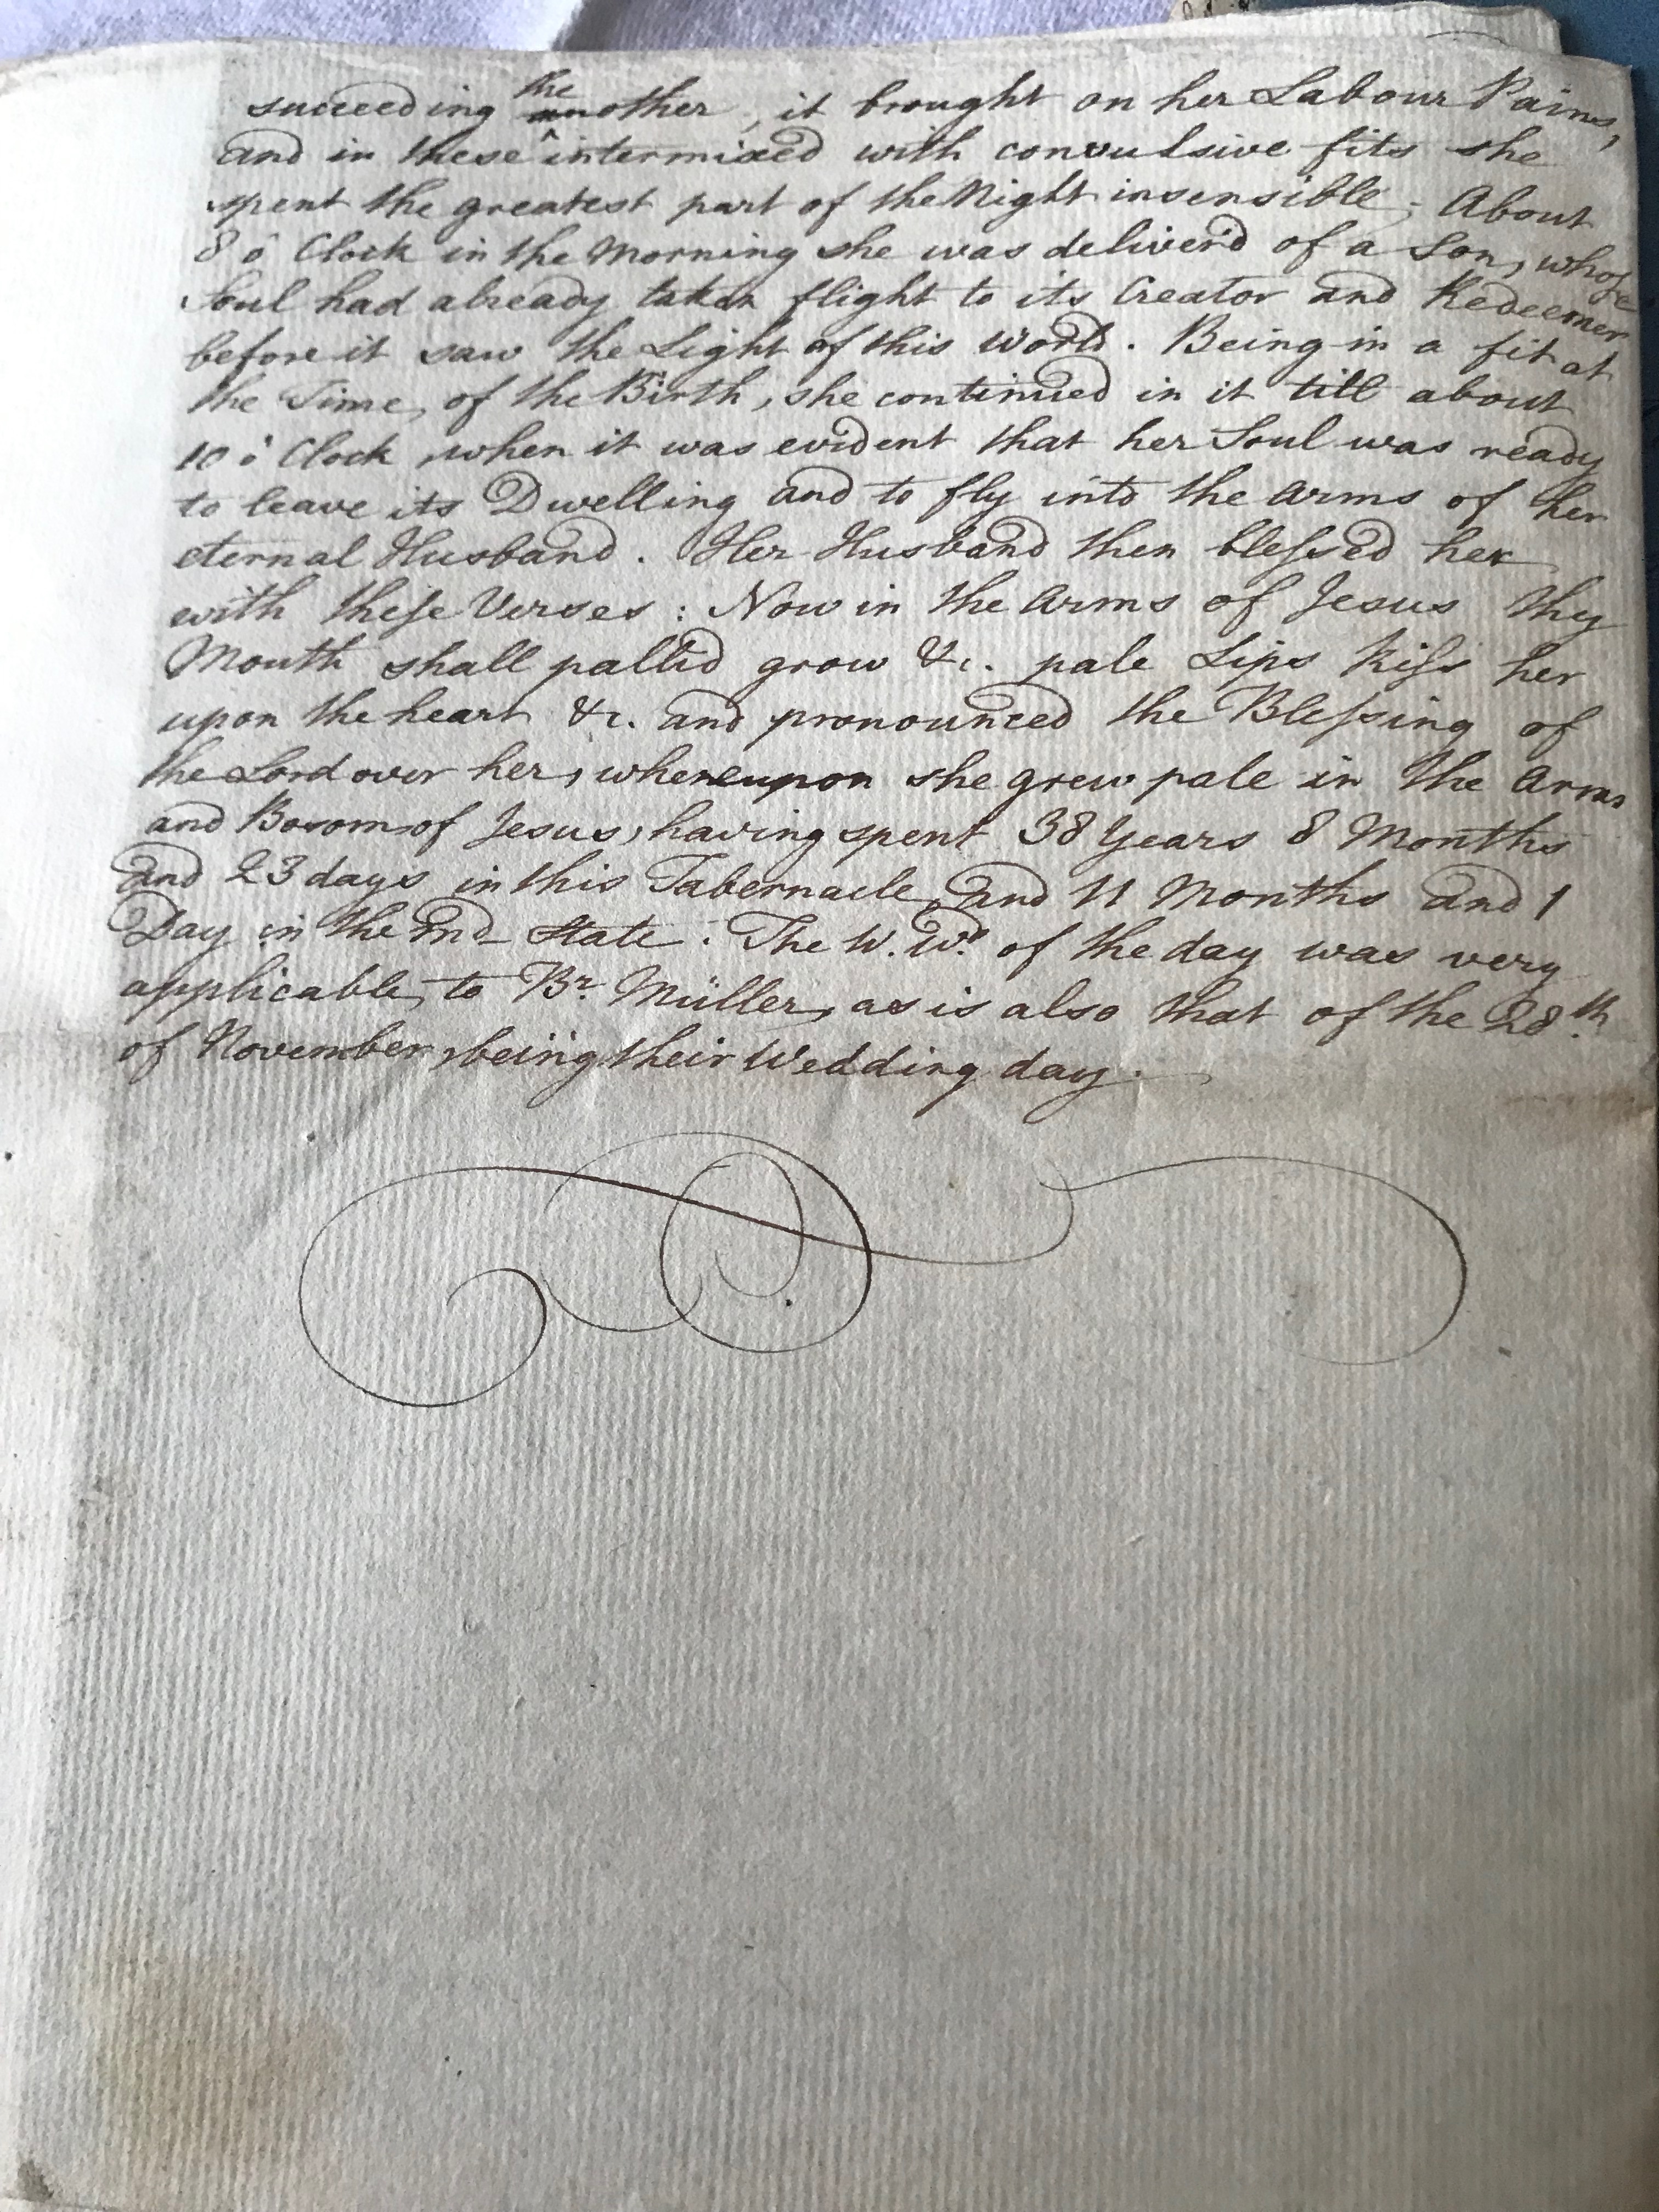 succeeding the another, it brought on her Labour Pains,
and in these intermixed with convulsive fits she
spent the greatest part of the Night insensible; About
8 o Clock in the Morning she was deliver'd of a Son, whose
Soul had already taken flight to its Creator and Redeemer
before it saw the Light of this World. Being in a fit at
the Time, of the Birth, she continued in it till about
10 o Clock, when it was evident that her Soul was ready
to leave its Dwelling and to fly into the Arms of her
eternal Husband. Her Husband then blessed her
with these Verses: Now in the Arms of Jesus thy
Mouth shall pallid grow &c. pale Lips kiss her
upon the heart &c. and pronounced the Blessing of
the Lord over her, whereupon she grew pale in the Arms
and Bosom of Jesus, having spent 38 Years 8 Months
and 23 days in this Tabernacle, and 11 Months and 1
Day in the md State. The W. Wd. of the day was very
applicable, to Br. Müller, as is also that of the 28th
of November, being their Wedding day.